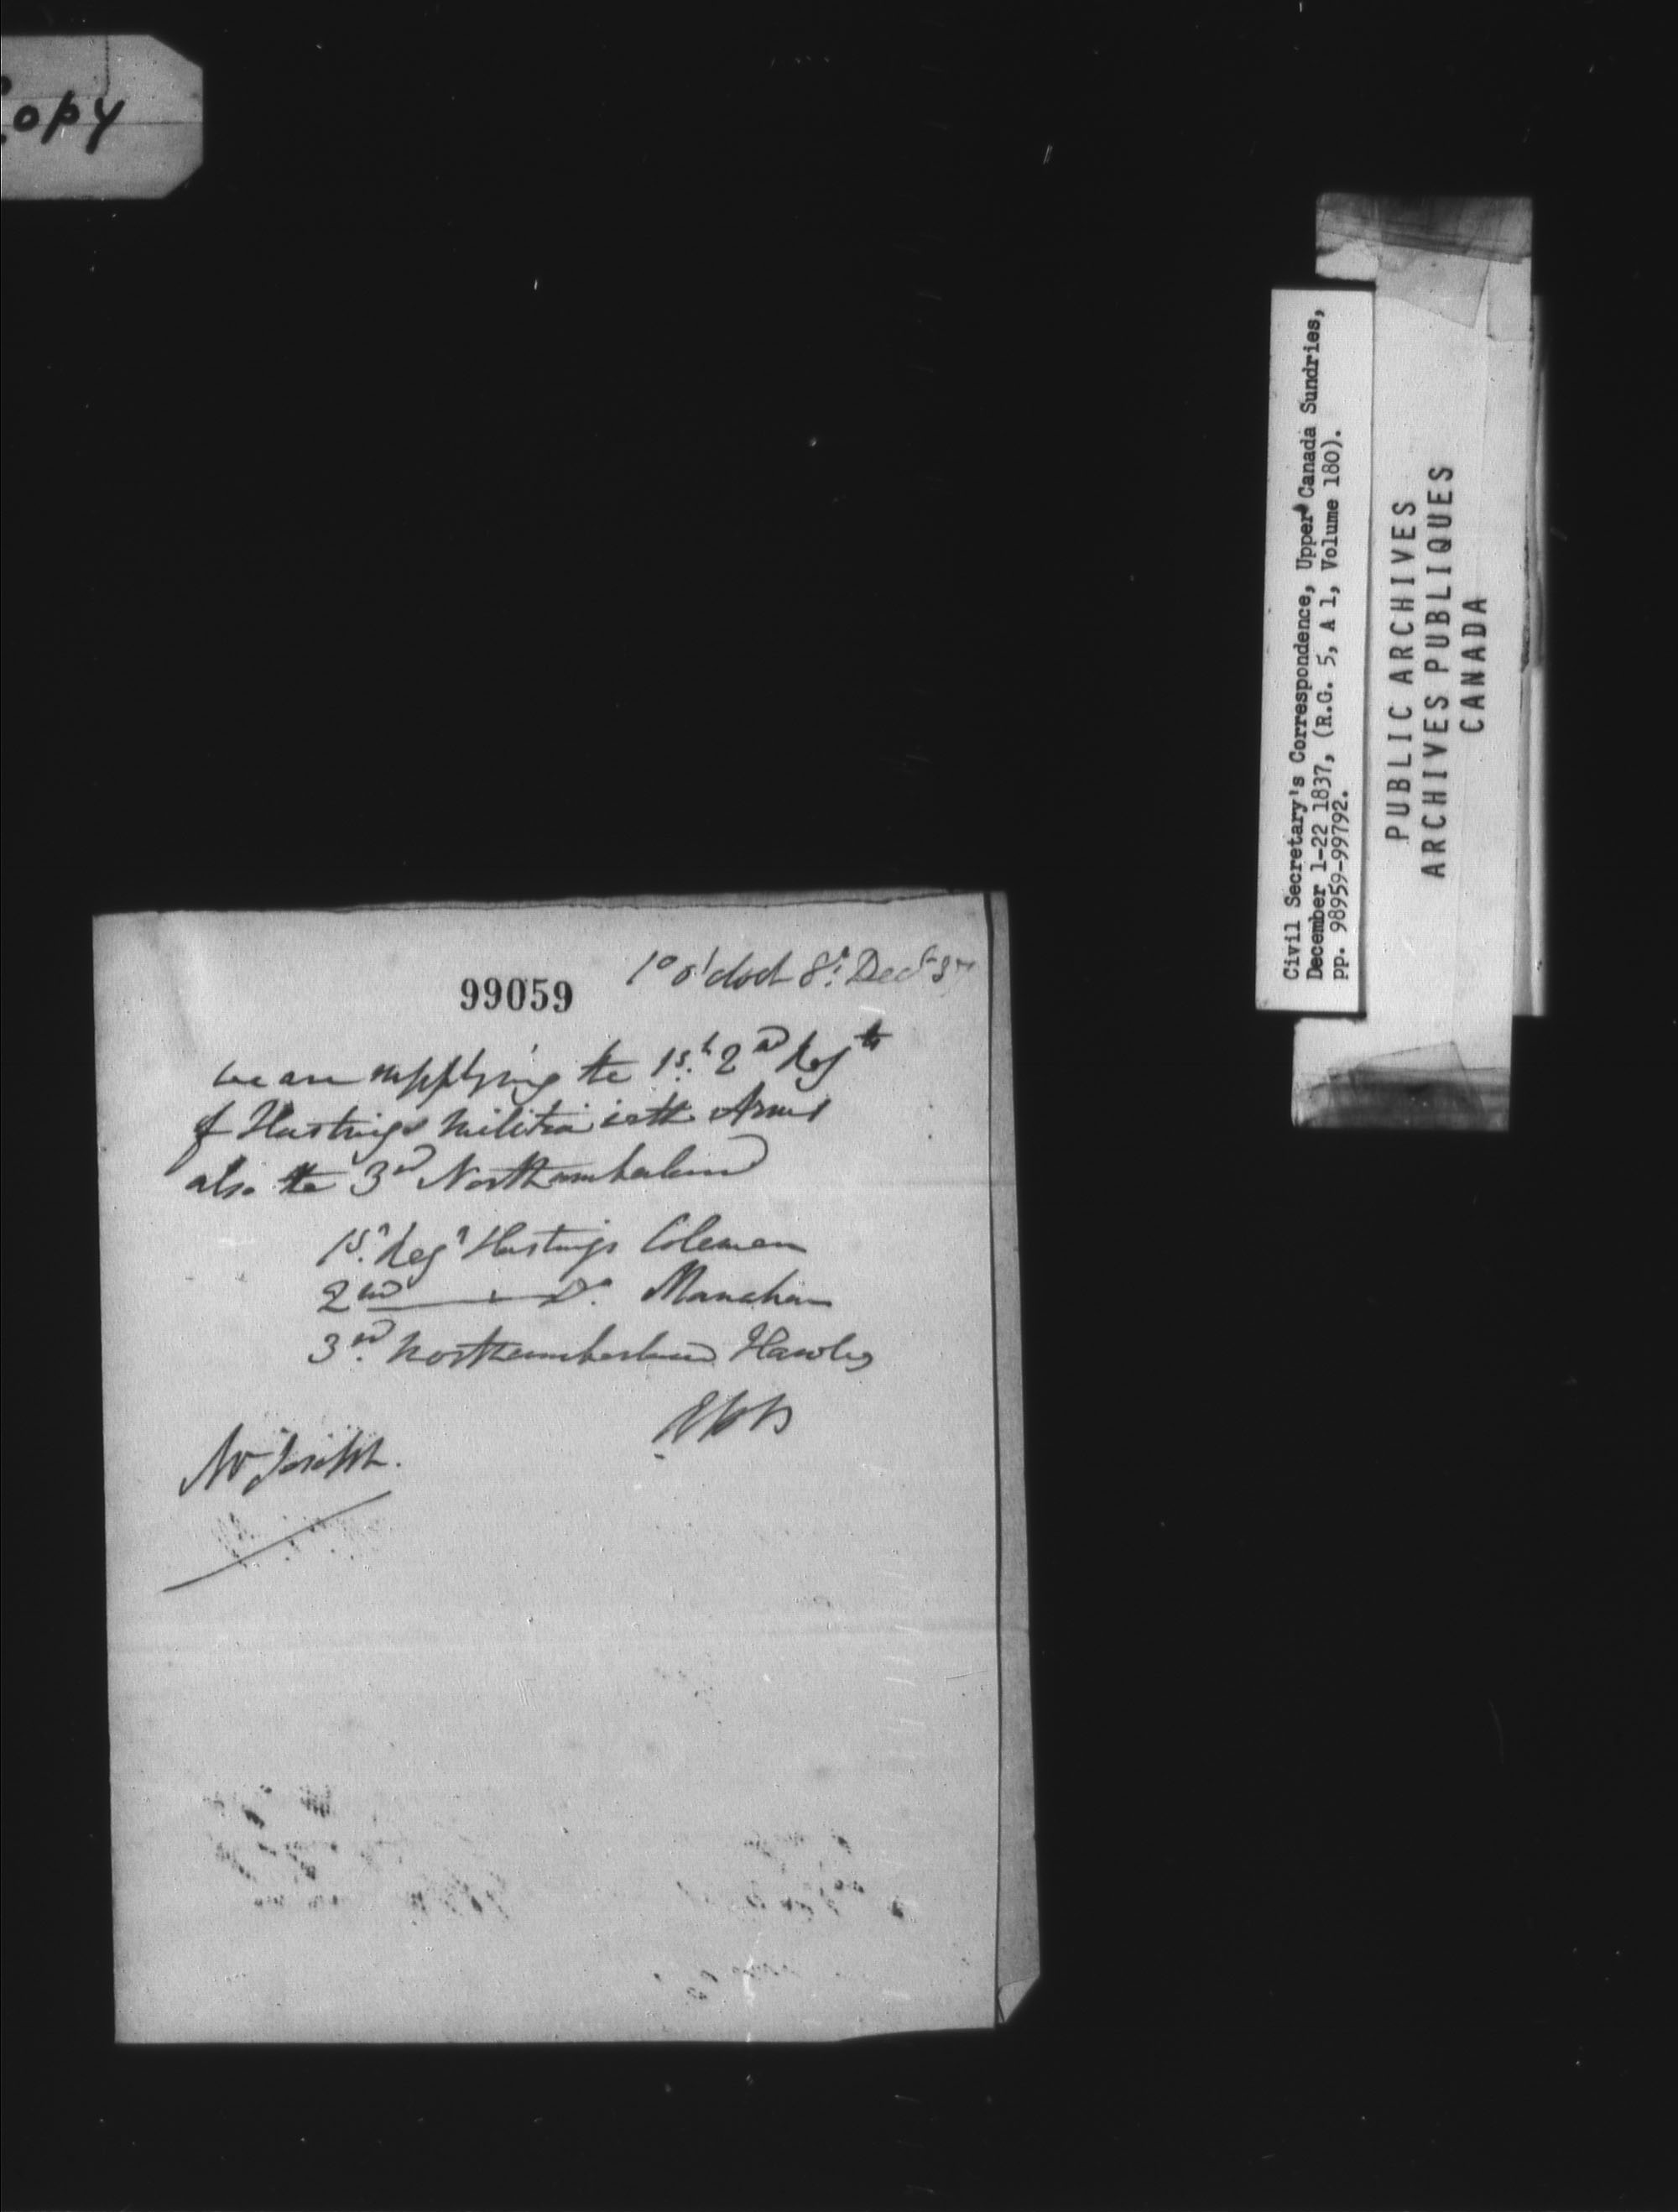 Copy
99059
1º o'clock 8th Decr 37
we are supplying the 1st 2nd Regts
of Hastings Militia with Arms
also the 3rd Northumberland
1st Regt Hastings Coleman
2nd — Do. Manahan
3rd Northumberland Hawley
Mr Joseph.
Civil Secretary's Correspondence, Upper Canada Sundries,
December 1-22 1837, (R.G. 5, A 1, Volume 180).
pp. 98959-99792.
PUBLIC ARCHIVES
ARCHIVES PUBLIQUES
CANADA